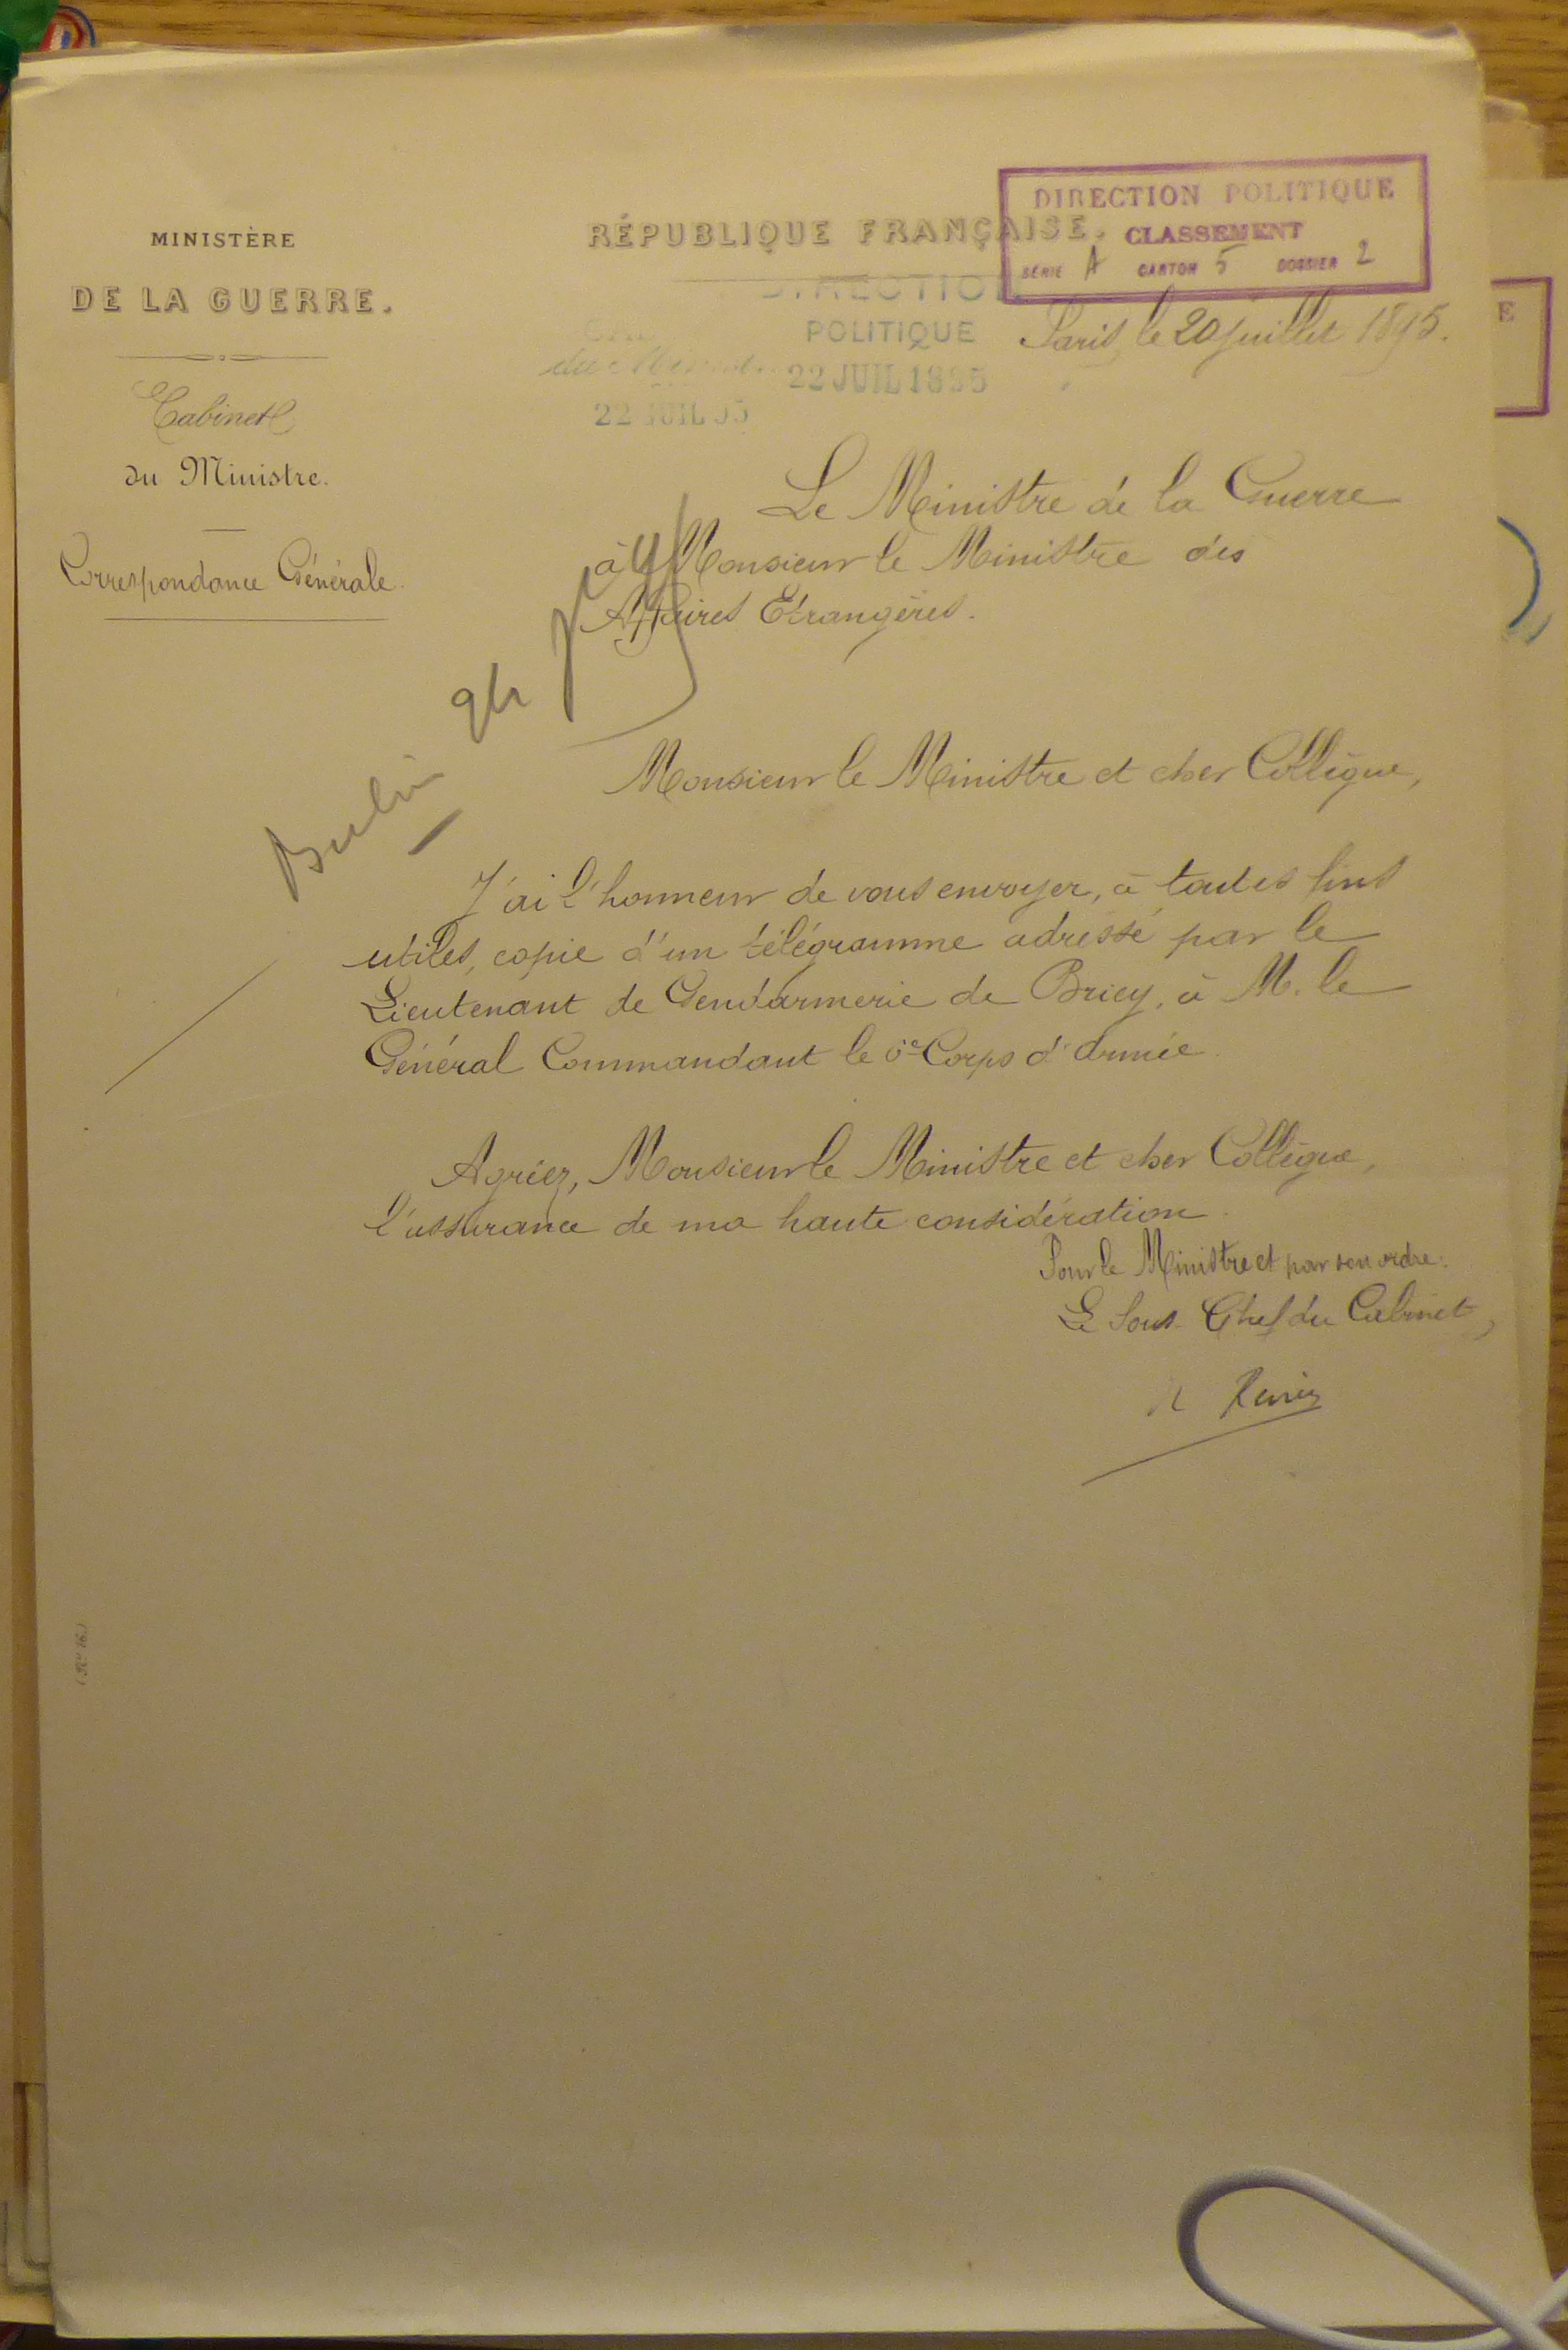 MINISTÈRE
DE LA GUERRE.
Cabinet
du Ministre.
Correspondance Générale.
RÉPUBLIQUE FRANÇAISE.
DIRECTION POLITIQUE
CLASSEMENT
SÉRIE A CARTON 5 DOSSIER 2
DIRECTION
POLITIQUE
22 JUIL 1895
22 JUIL 95
Paris, le 20 juillet 1895.
Le Ministre de la Guerre
à Monsieur le Ministre des
Affaires Etrangères.
Berlin
Monsieur le Ministre et cher Collègue,
J'ai l'honneur de vous envoyer, à toutes fins
utiles, copie d'un télégramme adressé par le
Lieutenant de Gendarmerie de Briey, à M. le
Général Commandant le 6e Corps d'Armée.
Agréez, Monsieur le Ministre et cher Collègue,
l'assurance de ma haute considération.
Pour le Ministre et par son ordre:
Le Sous-Chef du Cabinet,
(N° 16.)
E